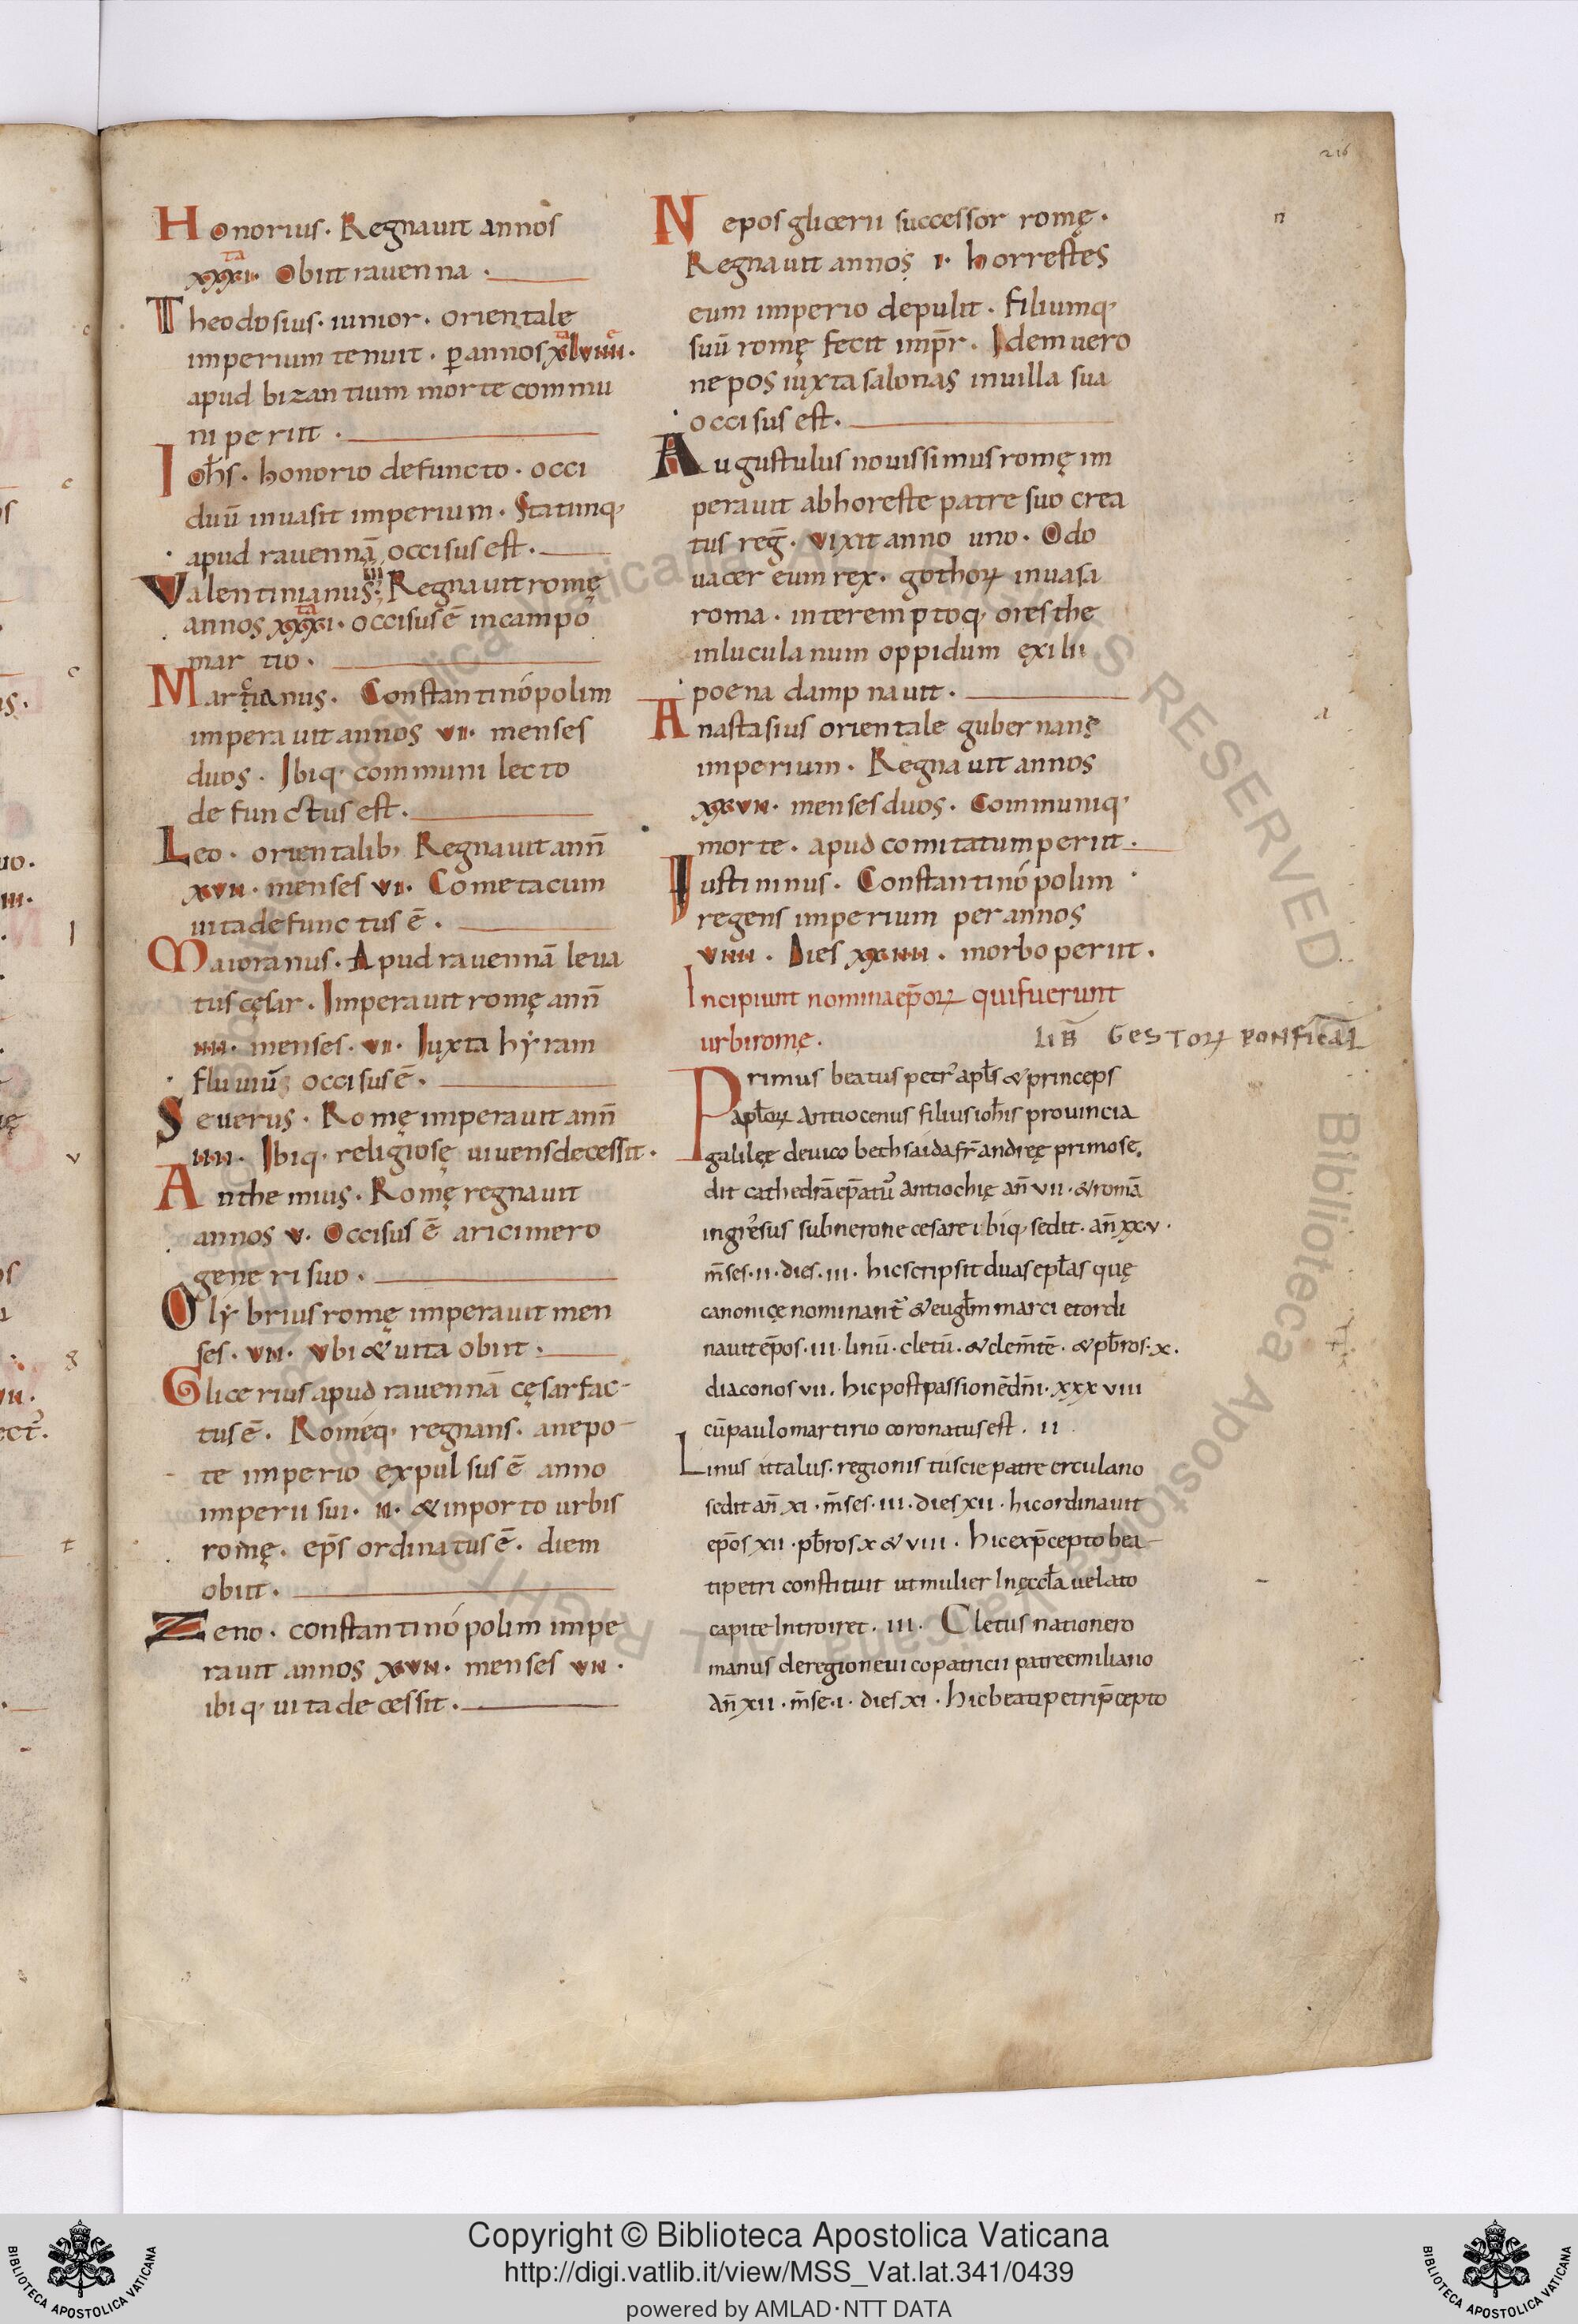 216
Honorius. Regnauit annos
xxxi. Obiit rauenna.
Theodosius. iunior. orientale
imperium tenuit. p̱ annos xlviiii.
apud bizantium morte commu
ni periit.
Ioh̅s. honorio defuncto. occi
duū inuasit imperium. Statimq;
apud rauennā occisus est.
Valentinianus iii. Regnauit romę
annos xxxi. occisus ē in campo
martio.
Martianus. Constantinopolim
imperauit annos vii. menses
duos. Ibiq; communi lecto
defunctus est.
Leo. orientalib; Regnauit ann̄
xvii. menses vi. Cometa cum
uita defunctus ē.
Maioranus. Apud rauennā leua
tus cęsar. Imperauit romę ann̄
iiii. menses. vi. Iuxta hyram
fluuiū occisus ē.
Seuerus. Romę imperauit ann̄
iiii. Ibiq; religiosę uiuens decessit.
Anthemius. Romę regnauit
annos v. Occisus ē a ricimero
generi suo.
Olybrius romę imperauit men
ses. vii. Vbi & uita obiit.
Glicerius apud rauennā cęsar fac-
tus ē. Romeq; regnans. a nepo-
te imperio expulsus ē anno
imperii sui. ii. & in porto urbis
romę. ep̄s ordinatus ē. diem
obiit.
Zeno. constantinopolim impe
rauit annos xvii. menses vii.
ibiq; uita decessit.
Nepos glicerii successor romę.
Regnauit annos i. horrestes
eum imperio depulit. filiumq;
suū romę fecit imp̄r. Idem uero
nepos iuxta salonas in uilla sua
occisus est.
Augustulus nouissimus romę im
perauit ab horeste patre suo crea
tus reḡ. vixit anno uno. Odo
uacer eum rex. gothoꝝ inuasa
roma. interemptoq; oresthe
in luculanum oppidum exilii
poena dampnauit.
Anastasius orientale gubernans
imperium. Regnauit annos
xxvii. menses duos. Communiq;
morte. apud comitatum periit.
Iustininus. Constantinopolim
regens imperium per annos
viiii. Dies xxiiii. morbo periit.
Incipiunt nomina ep̄oꝝ qui fuerunt
urbi romę.
LIB̄ GESTOꝝ PONFICAL̄
Primus beatus petr' apl̄s & princeps
apl̄oꝝ antiocenus filius ioh̄is prouincia
galilęę de uico bethsaida fr̄ andręę primo se
dit cathedrā ep̄atū antiochię an̄ vii. & romā
ingr̄esus sub nerone cesare ibiq; sedit. an̄ xxv.
m̄ses. ii. dies. iii. hic scripsit duas epl̄as quę
canonicę nominant̄ & eugl̄m marci et ordi
nauit ep̄os. iii. linū. cletū. & clem̄tē. & pb̄ros. x.
diaconos vii. hic post passionē dn̄i. xxxviii
cū paulo martirio coronatus est. ii
Linus italus. regionis tuscie patre erculano
sedit an̄ xi. m̄ses. iii. dies xii. hic ordinauit
ep̄os xii. pb̄ros x & viii. hic ex p̄cepto bea-
ti petri constituit ut mulier In ęccl̄a uelato
capite Introiret. iii. Cletus natione ro
manus de regione uico patricii patre emiliano
an̄ xii. m̄se. i. dies xi. hic beati petri p̄cepto
Copyright © Biblioteca Apostolica Vaticana
http://digi.vatlib.it/view/MSS_Vat.lat.341/0439
powered by AMLAD·NTT DATA